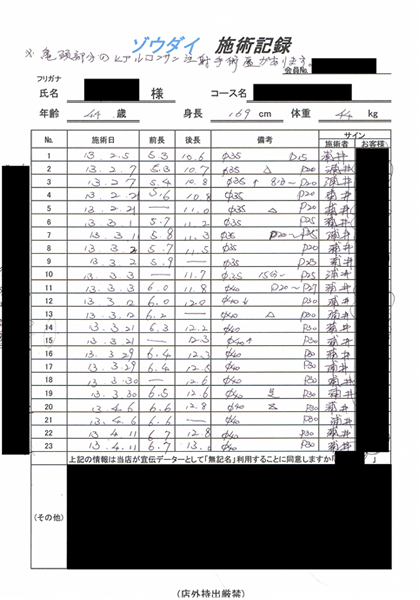 ゾウダイ 施術記録
※亀頭部分のヒアルロンサン注射手術歴があります。
会員No.
フリガナ
氏名 様 コース名
年齢 44 歳 身長 169 cm 体重 44 kg
No. 施術日 前長 後長 備考 サイン
施術者 お客様
1 13.2.5 5.3 10.6 φ35 P15 浦井
2 13.2.7 5.3 10.7 φ35 △ P20 浦井
3 13.2.7 5.4 10.8 φ35 P20 浦井
4 13.2.21 5.6 10.8 φ35 P20 浦井
5 13.2.21 — 11.0 φ35 △ P20 浦井
6 13.3.1 5.7 11.2 φ35 P25 浦井
7 13.3.1 5.8 11.3 φ35 P20~P25 浦井
8 13.3.2 5.7 11.5 φ35 P20 浦井
9 13.3.2 5.9 — φ35 P25 浦井
10 13.3.3 — 11.7 φ35 15分~ P25 浦井
11 13.3.3 6.0 11.8 φ40 P20~P27 浦井
12 13.3.12 6.0 12.0 φ40↓ P30 浦井
13 13.3.12 6.2 — φ40 △ P30 浦井
14 13.3.21 6.3 12.2 φ40 P30 浦井
15 13.3.21 — 12.3 φ40↑ P30 浦井
16 13.3.29 6.4 12.3 φ40 P30 浦井
17 13.3.29 6.4 12.5 φ40 P30 浦井
18 13.3.30 — 12.6 φ40 P30 浦井
19 13.3.30 6.5 12.6 φ40 P30 浦井
20 13.4.6 6.6 12.8 φ40 P30 浦井
21 13.4.6 6.6 — φ40 P30 浦井
22 13.4.11 6.7 12.8 φ40 P30 浦井
23 13.4.11 6.7 13.0 φ40 P30 浦井
上記の情報は当店が宣伝データーとして「無記名」利用することに同意しますか「 」
(その他)
(店外持出厳禁)